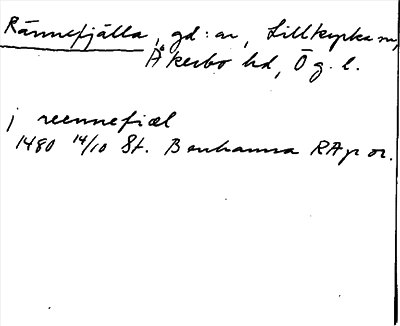 Rännefjälla, gd:ar, Lillkyrka sn,
Åkerbo hd, Ög. l.
j reennefiæl
1480 14/10 St. Benhamra RAp or.